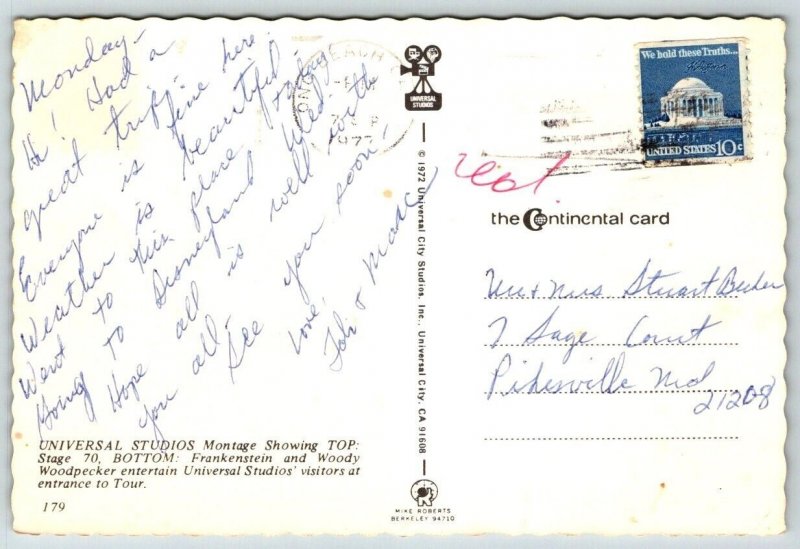 Monday-
Hi! Had a
great trip.
Everyone is fine here.
Weather is beautiful.
Went to this place today
Going to Disneyland Wed.
Hope all is well with
you all. See you soon!
Love,
UNIVERSAL STUDIOS Montage Showing TOP:
Stage 70, BOTTOM: Frankenstein and Woody
Woodpecker entertain Universal Studios' visitors at
entrance to Tour.
179
UNIVERSAL
STUDIOS
© 1972 Universal City Studios, Inc., Universal City, CA 91608
MIKE ROBERTS
BERKELEY 94710
BEACH
We hold these Truths...
UNITED STATES 10c
the Continental card
Mr & Mrs Stuart Becker
7 Sage Court
Pikesville Md
21208